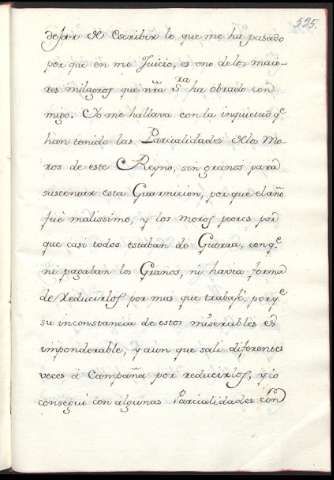 525.
dejar de Escribir lo que me ha pasado
por que en mi Juicio, es uno de los maio-
res milagros que nra Sra ha obrado con-
migo. Yo me hallava con la inquietud qe
han tenido las Parcialidades de los Mo-
ros de este Reyno, sin granos para
sustentar esta Guarnicion, por que el año
fué malissimo, y los Moros peores por
que casi todos estaban de Guerra, con qe
ni pagavan los Granos, ni havia forma
de reducirlos por mas que trabajé, porqe
su inconstancia de estos miserables es
imponderable, y aun que sali diferentes
veces á Campaña por reducirlos, y lo
consegui con algunas Parcialidades con